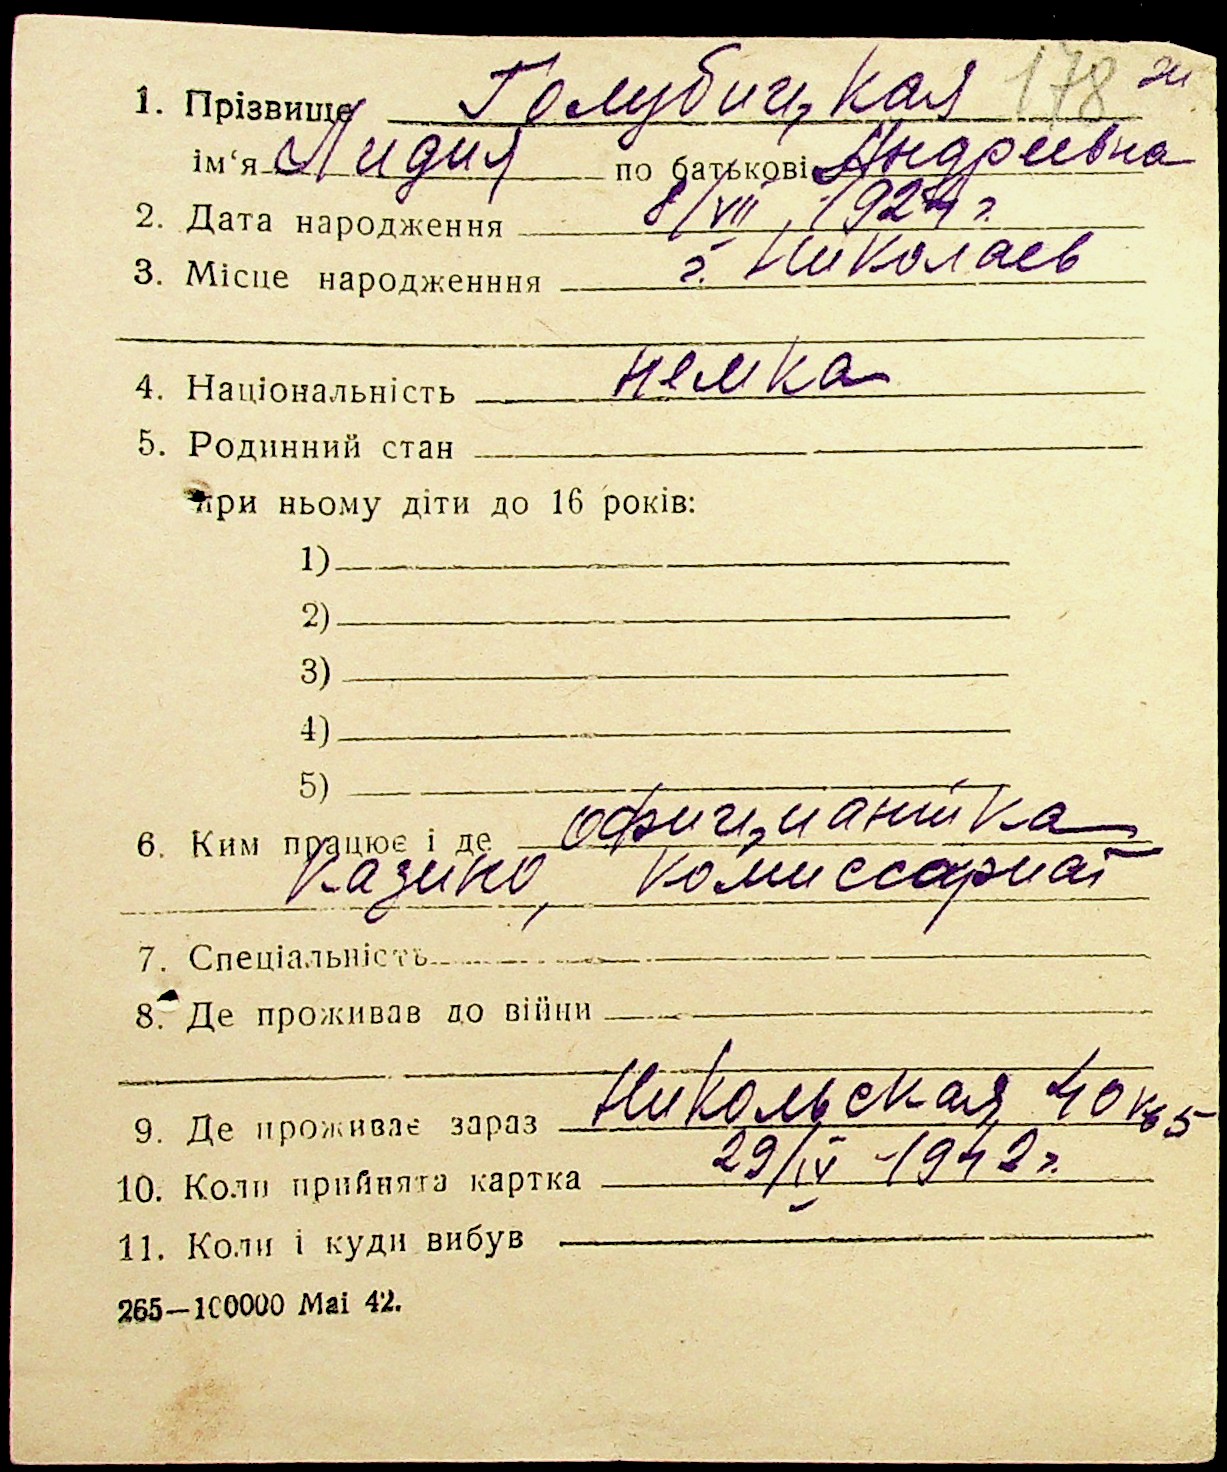 1. Прізвище Голубицкая 178
ім‘я Лидия по батькові Андреевна
2. Дата народження 8/VII 1924 г.
3. Місце народженння г. Николаев
4. Національність немка
5. Родинний стан
при ньому діти до 16 років:
1)
2)
3)
4)
5)
6. Ким працює і де официантка
казино, комиссариат
7. Спеціальність
8. Де проживав до війни
9. Де проживає зараз Никольская 40 кв 5
10. Коли прийнята картка 29/IV -1942 г.
11. Коли і куди вибув
265—100000 Mai 42.